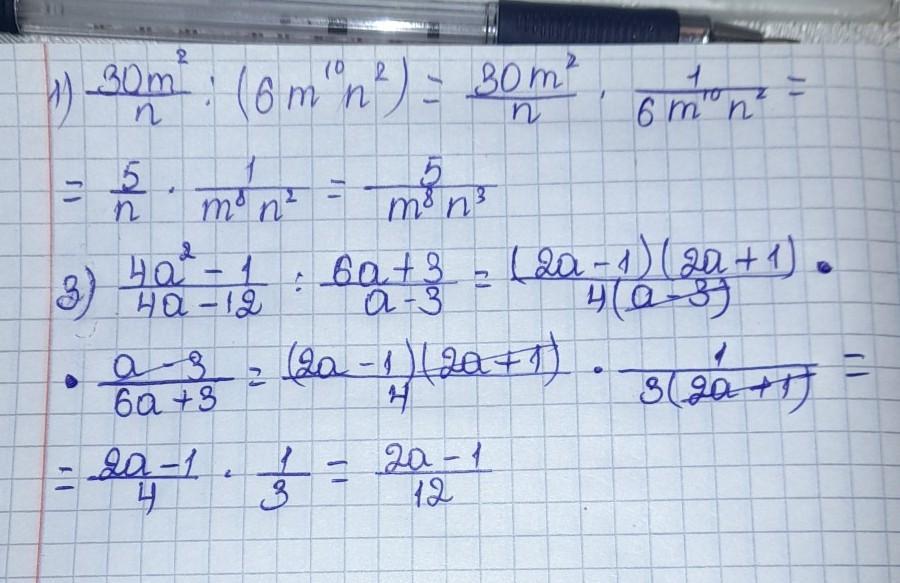 1) 30m²/n : (6m¹⁰n²) = 30m²/n · 1/(6m¹⁰n²) =
= 5/n · 1/(m⁸n²) = 5/(m⁸n³)
3) (4a² - 1)/(4a - 12) : (6a + 3)/(a - 3) = ((2a - 1)(2a + 1))/(4(a - 3)) ·
· (a - 3)/(6a + 3) = ((2a - 1)(2a + 1))/4 · 1/(3(2a + 1)) =
= (2a - 1)/4 · 1/3 = (2a - 1)/12